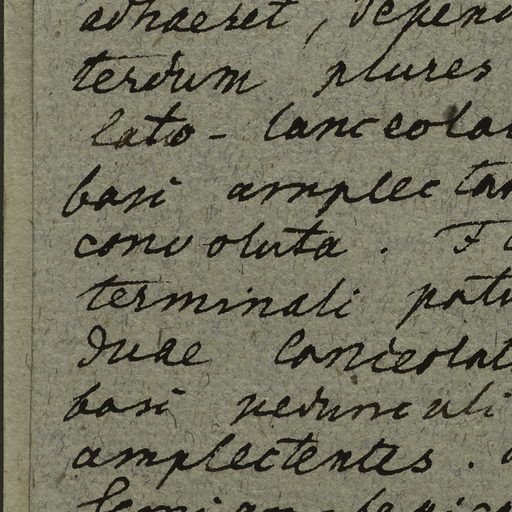 adhaeret, depend
terdum plures
lato-lanceola
basi amplectan
convoluta. F
terminali patu
duae lanceolat
basi pedunculi
amplectentes.